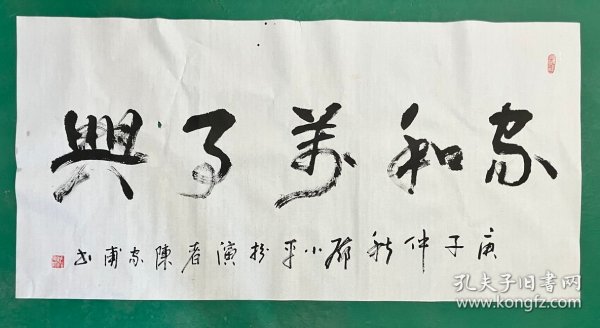 家和萬事興
庚子仲秋 鄧小平扮演者陳家甫書
孔夫子旧书网
www.kongfz.com